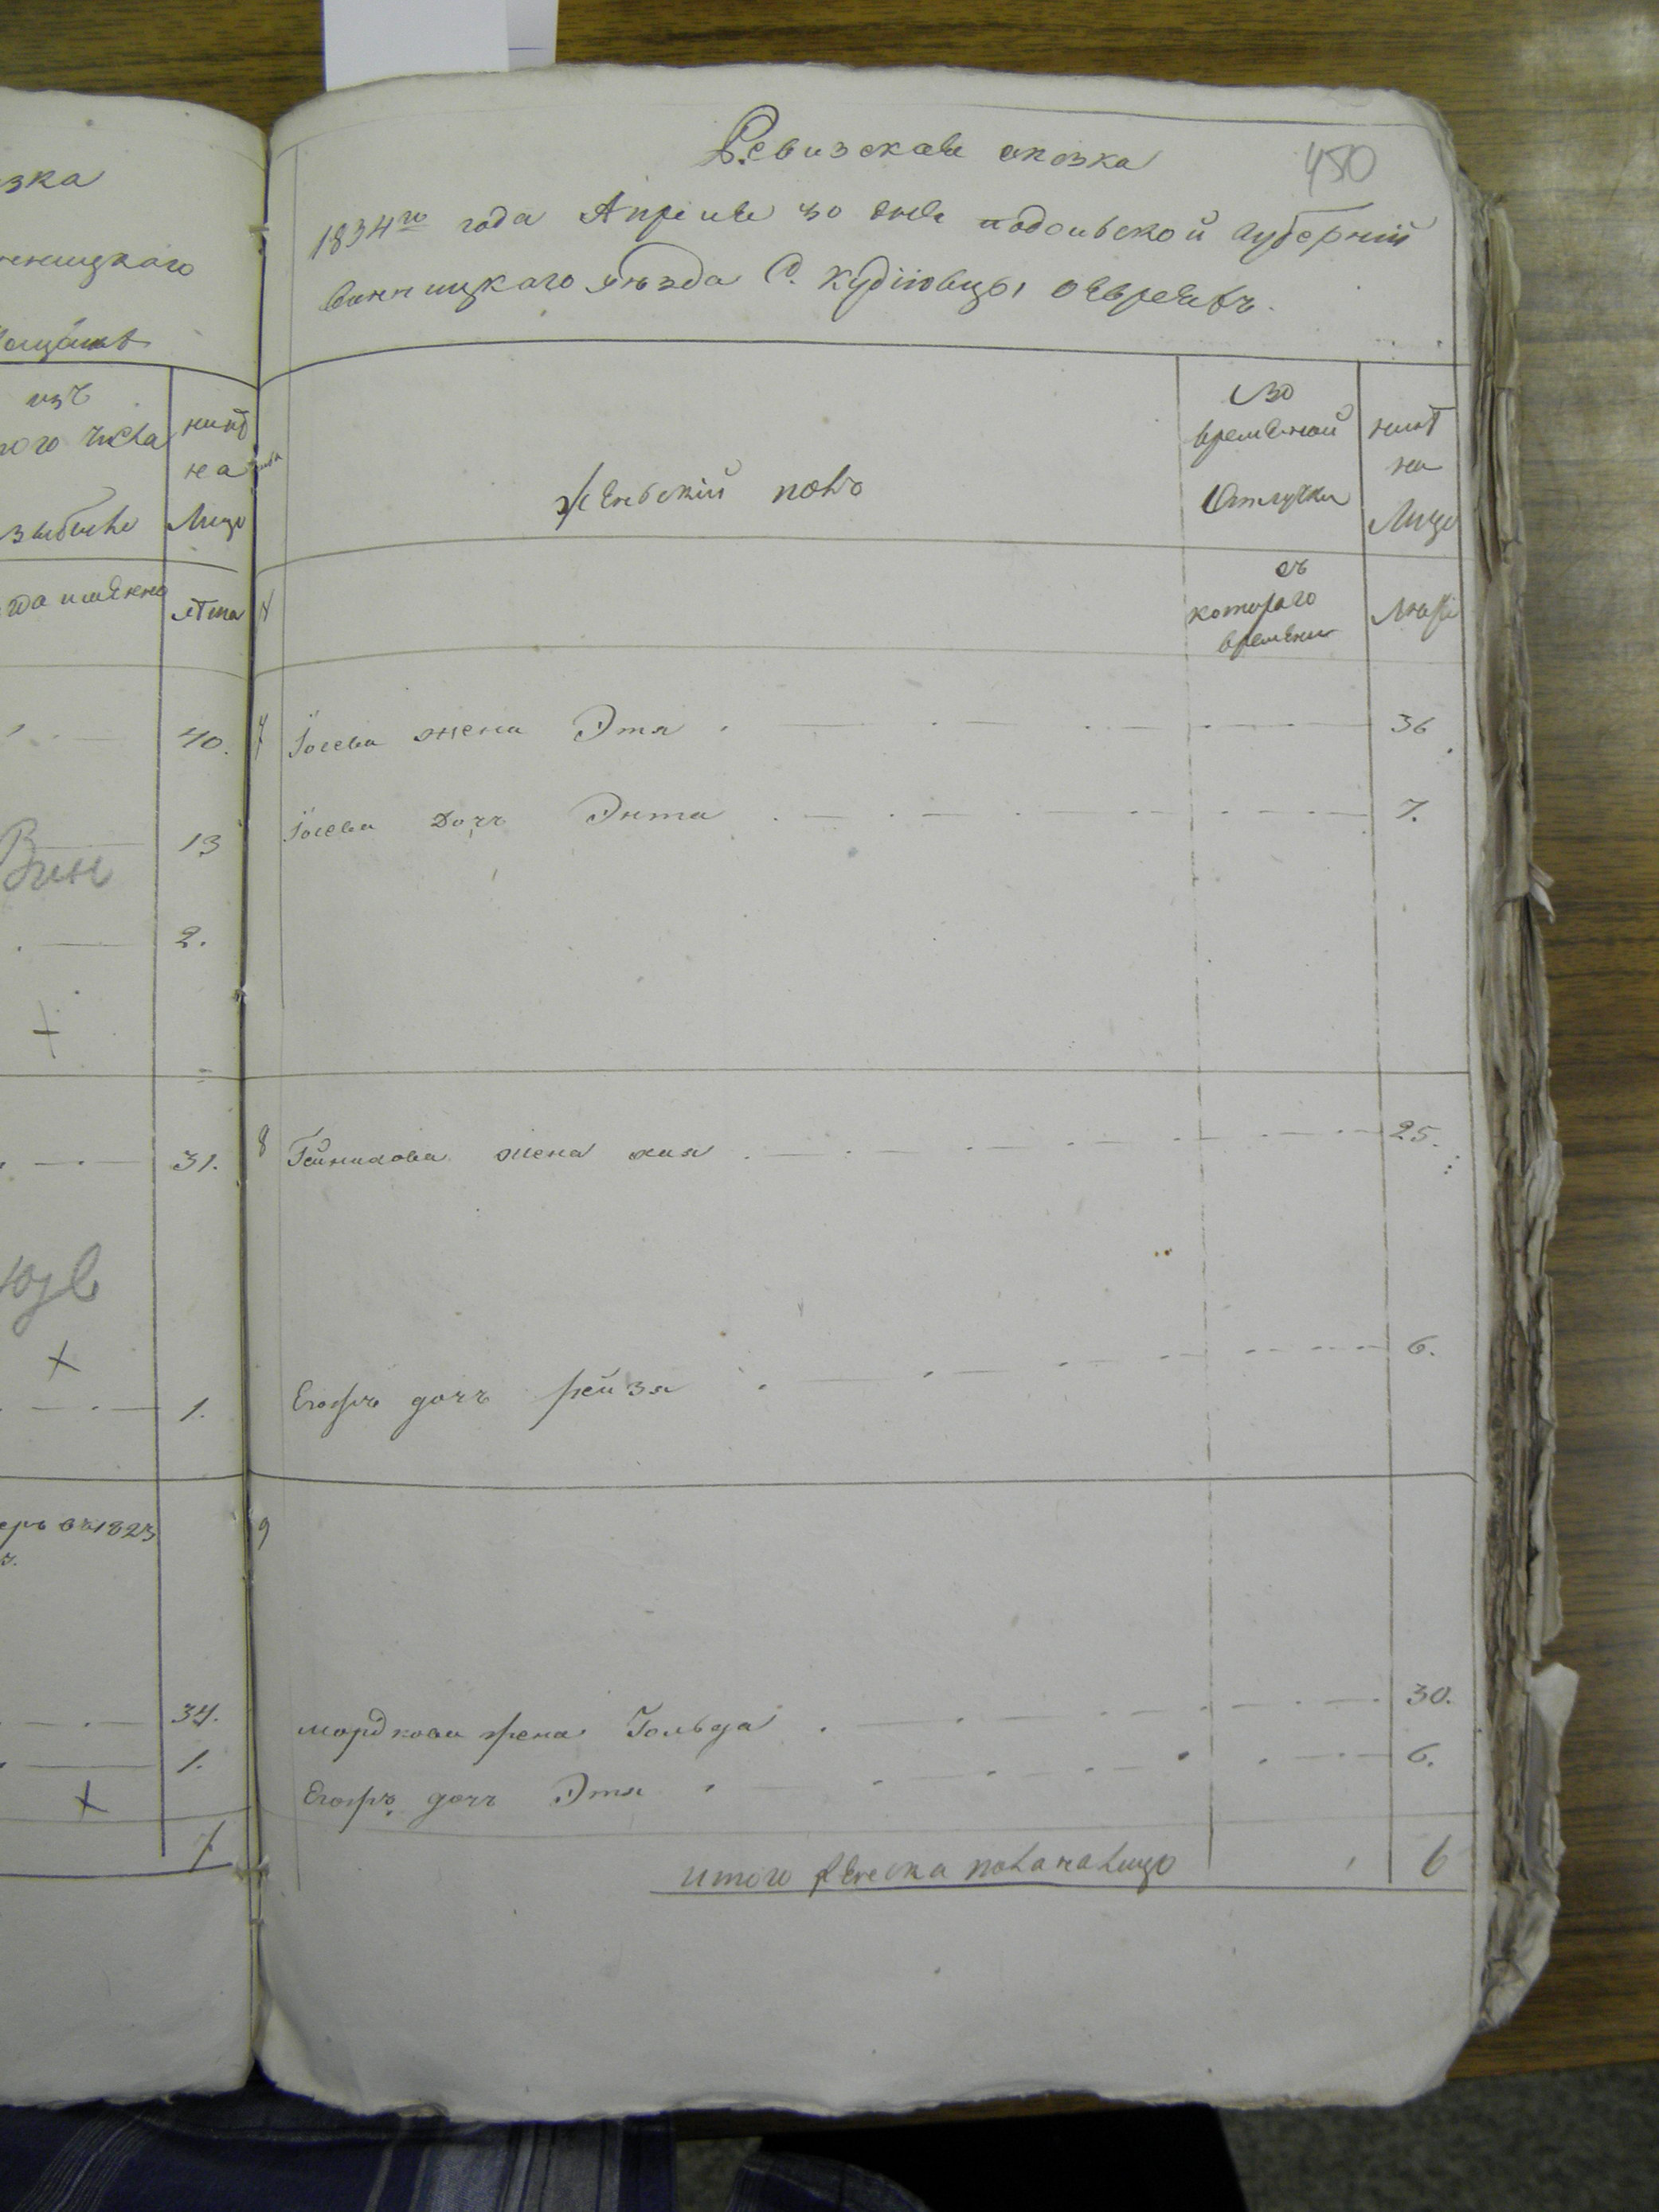 зка
нницкаго
изъ
ного числа
нынѣ
на
Лицо
выбыли
лѣта
40.
13
Вин
2.
+
31.
+
1.
въ 1823
34.
1.
+
7
Ревизская сказка
450
1834го года Апреля 30 дня подольской губерніи
винницкаго уѣзда С. Кудіювцы о евреяхъ.
женьскій полъ
Во
временной
Отлучки
нинѣ
на
Лицо
съ
котораго
времени
Лѣта
7 Іосева жена Этя 36
Іосева дочъ Энта 7.
8 жена хая 25.
Егоже дочъ рейзя 6.
9
мордкова жена Гольда 30.
Егоже дочъ Этя 6.
итого женска пола налицо 6